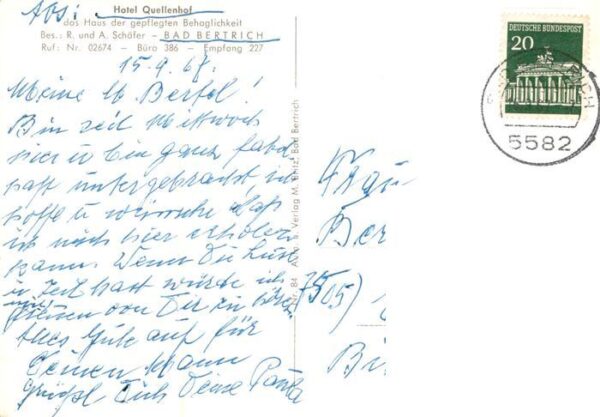 Abs:
Hotel Quellenhof
das Haus der gepflegten Behaglichkeit
Bes.: R. und A. Schäfer - BAD BERTRICH
Ruf: Nr. 02674 - Büro 386 - Empfang 227
15.9.67.
Meine l. Bertel!
Bin seit Mittwoch
hier u bin ganz fabel
haft untergebracht
hoffe u wünsche daß
ich mich hier erholen
kann. Wenn Du Lust
u Zeit hast würde ich
mich freuen von Dir zu hören
Alles Gute auch für
Deinen Mann
grüßt Dich Deine Paula
Verlag M. Bad Bertrich
84
DEUTSCHE BUNDESPOST
20
5582
Frau
Ber
505)
Bi